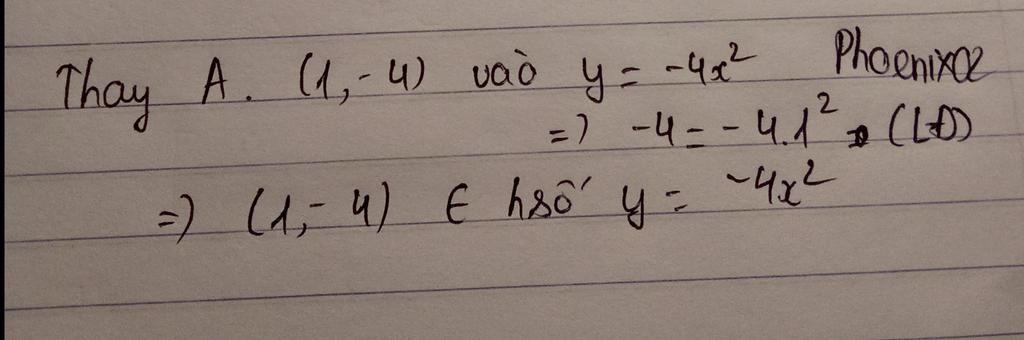 Thay A. (1,-4) vào y = -4x² Phoenixce
=) -4 = -4.1² (LĐ)
=) (1,-4) ∈ hsố y = -4x²